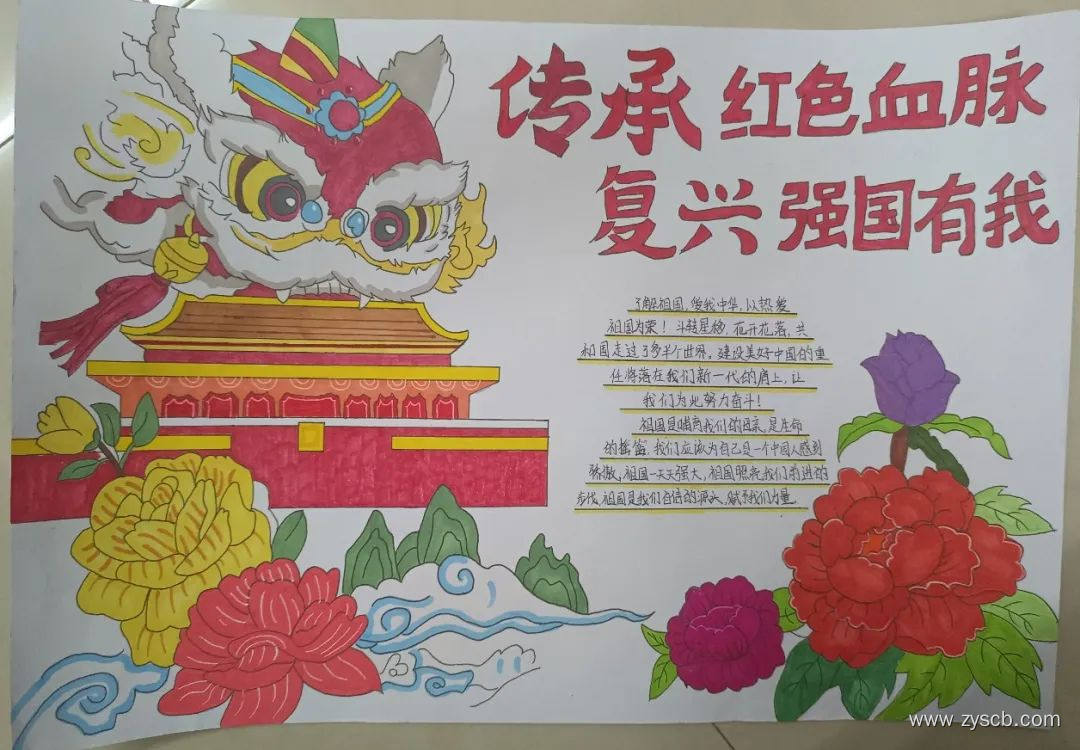 传承 红色血脉
复兴 强国有我
了解祖国,爱我中华,以热爱
祖国为荣!斗转星移,花开花落,共
和国走过了多半个世界,建设美好中国的重
任将落在我们新一代的肩上,让
我们为此努力奋斗!
祖国是哺育我们的母亲,是生命
的摇篮,我们应该为自己是一个中国人感到
骄傲,祖国一天天强大,祖国照亮我们前进的
步伐,祖国是我们自信的源头,赋予我们力量
www.zyscb.com